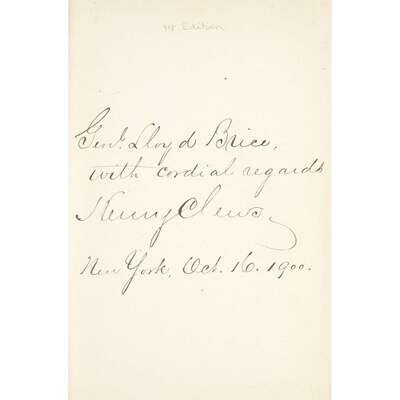 1st Edition
Genl. Lloyd Brice,
with cordial regards
Henry Clews.
New York, Oct. 16. 1900.